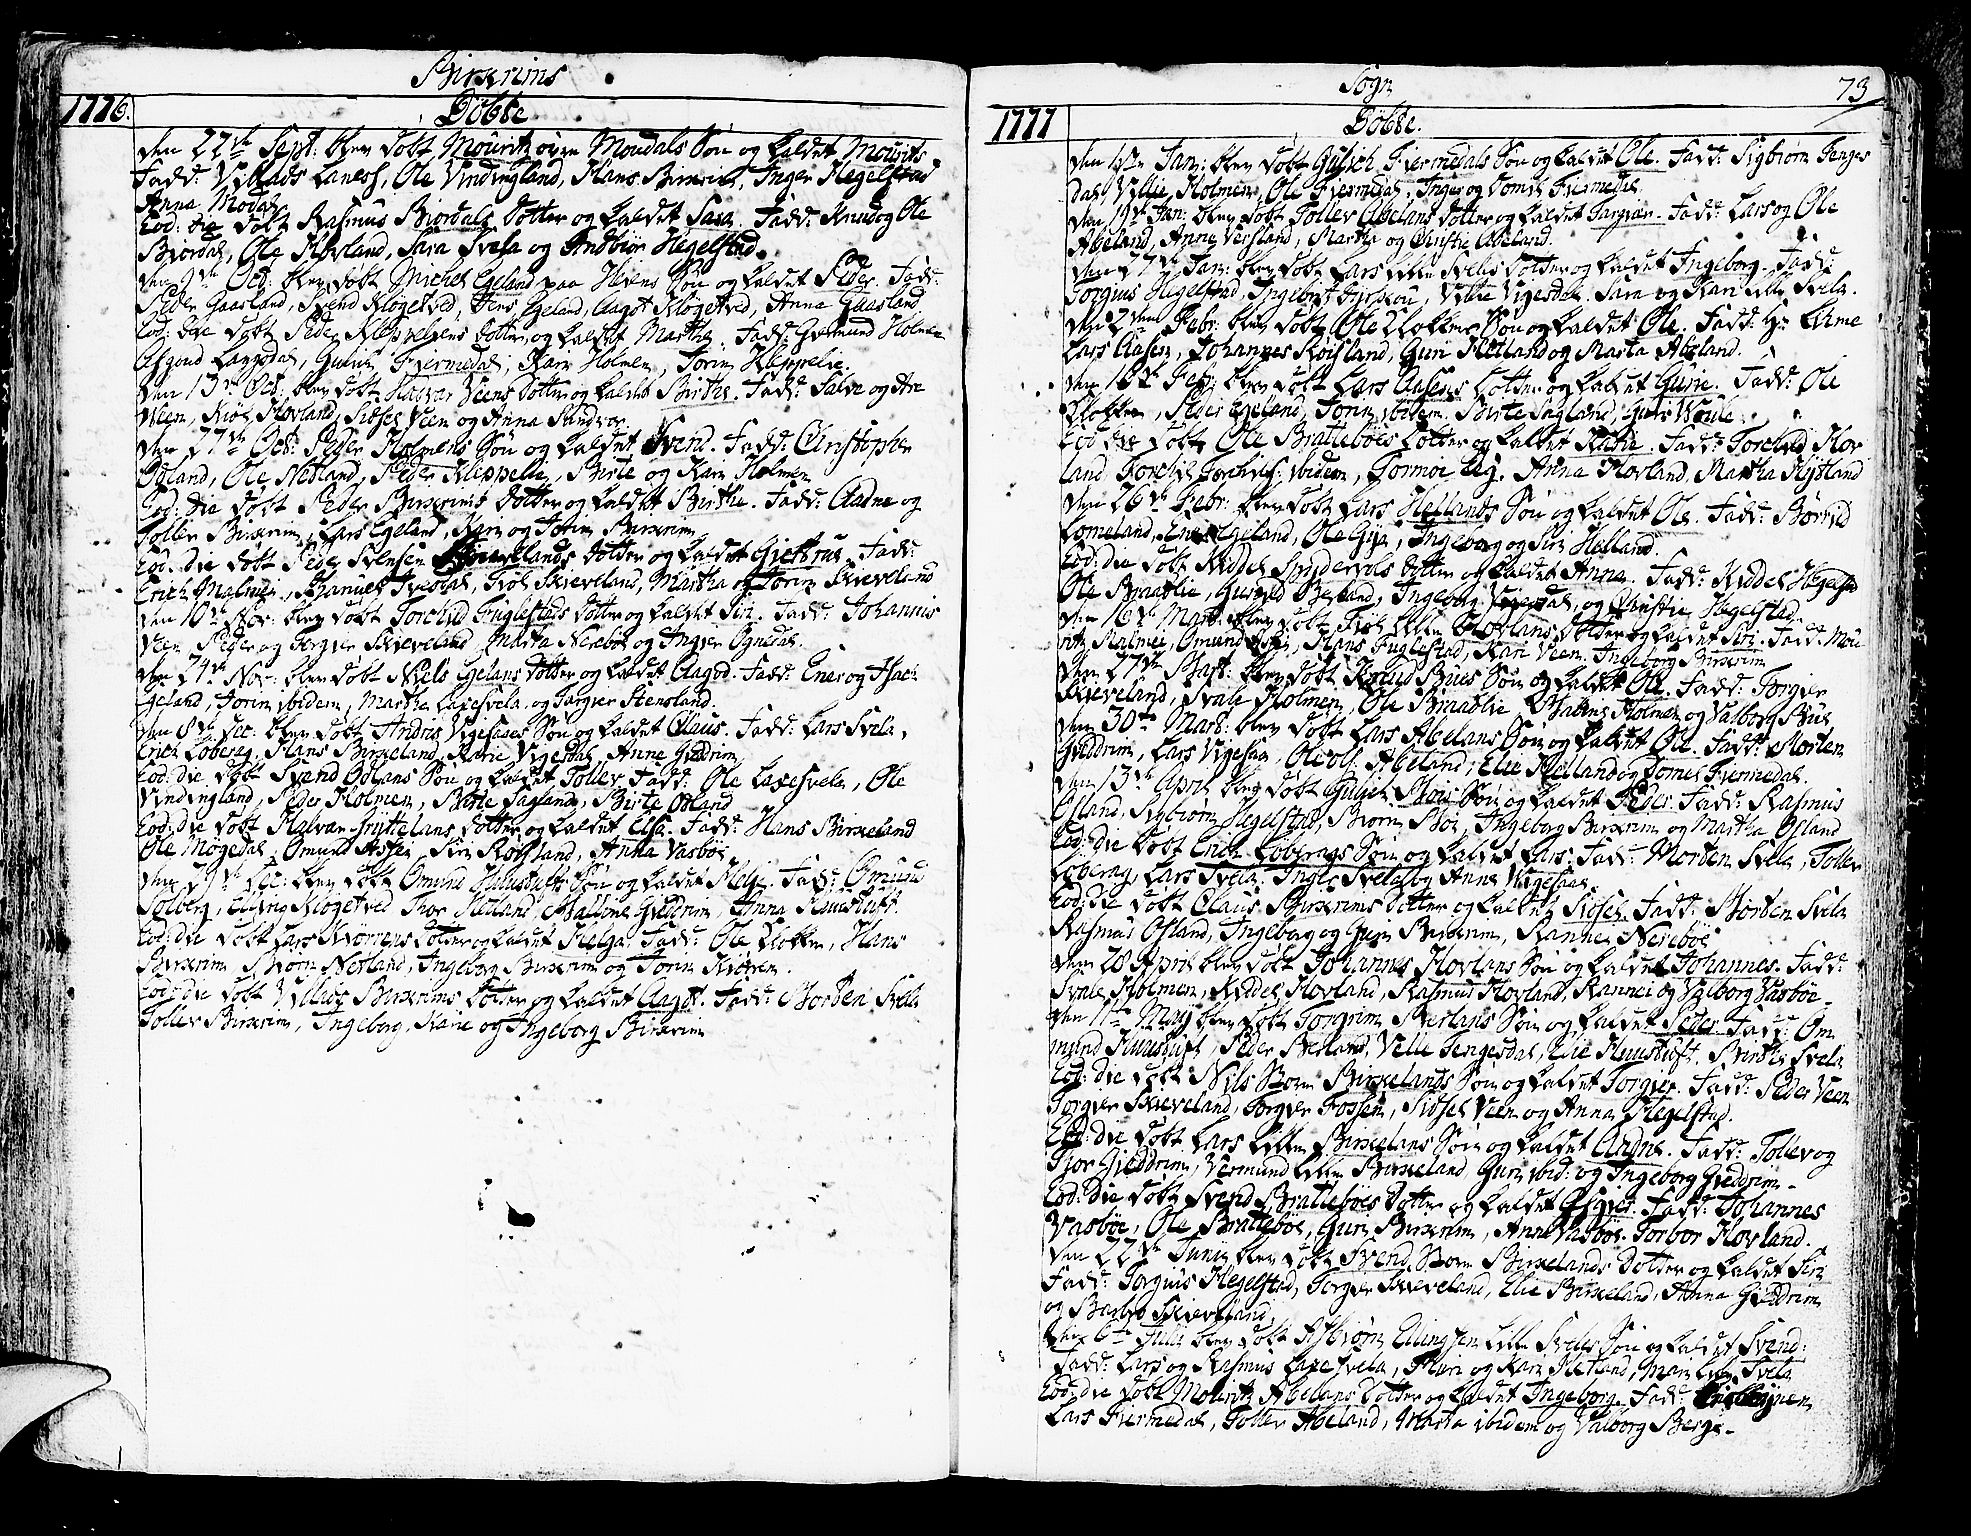 Birkrims
1776.
Döbte
den 22de Sept: blev döbt Mouritz övre Moudals Sön og kaldet Mourits
Fadd: Villads Lanesh, Ole Vindingland, Hans Birkrim, Inger Hegelstad
Anna Modal
Eod: die döbt Rasmus Biordals Dotter og kaldet Sara. Fadd: Knud og Ole
Biordal, Ole Hovland, Sara Svela og Andbiör Hegelstad.
den Oct: blev döbt Michel Egeland paa Sön og kaldet Peder. Fadd:
Peder Gaasland, Svend Klogetved, Jens Egeland, Aagot Klögetved, Anna Gaasland
Eod: die döbt Peder Kleppeliens Dotter og kaldet Martha. Fadd: Gudmund Holmen
Asgoud Langsdal, Gulich Fiermedal, Kari Holmen, Torin Kleppelie.
den 13de Oct: blev döbt Halvar Veens Dotter og kaldet Birthe. Fadd: Salve og Are
Veen, Hovland, Sidsel Veen og Anna Sandvor
den 27de Oct: Peder Holmens Sön og kaldet Svend. Fadd: Christopher
Ogland, Ole Netland, Peder Kleppelie, Birte og Kari Holmen
Eod: die döbt Peder Birkrims Dotter og kaldet Birthe. Fadd: Aadne og
Toller Birkrim, Lars Egeland, Kari og Torin Birkrim
Eod: die döbt Peder Svensen Skievelands Dotter og kaldet Giertrue. Fadd:
Erich Malmen, Samuel Ivesdal, Trols Skieveland, Martha og Torin Skieveland
den 10de Nov: blev döbt Torchild Fuglestads Dotter og kaldet Siri. Fadd: Johannis
Veen Peder og Torger Skieveland, Marta Nereböe og Inger Ognedal.
den 24de Nov: blev döbt Niels Egelans Dotter og kaldet Aagod. Fadd: Ener og Isach
Egeland, Torin ibidem, Martha Laxesvela, og Torger Stensland.
den 8de Dec: blev döbt Andrus Vigesaaes Sön og kaldet Claus. Fadd: Lars Svela,
Erich Löberag, Hans Birkeland, Karie Vigesdal, Anne Gieddrim
Eod: die döbt Svend Oslans Sön og kaldet Toller. Fadd: Ole Laxesvela, Ole
Vindingland, Peder Holmen, Birte Sagland, Birte Osland
Eod: die döbt Halvar Gryttelans Dotter og kaldet Elsa. Fadd: Hans Birkeland
Ole Mögedal, Omund Assen, Siri Röisland, Anna Vasböe
den Dec: blev döbt Omund Huustufts Sön og kaldet Helje. Fadd: Omund
Solberg, Elling Klogetved Thor Hetland, Mallene Gieddrim, Anna Huustuft.
Eod: die döbt Lars Kiörrens Dotter og kaldet Helga. Fadd: Ole Klokker, Hans
Birkrim Biörn Netland, Ingeborg Birkrim og Torin Kiörren.
Eod: die döbt Villads Birkrims Dotter og kaldet Aagot. Fadd: Morten Svela
Toller Birkrim, Ingeborg, Karie og Ingeborg Birkrim
Sogn
73
1777
Döbte.
den Jan: blev döbt Gulich Fiermedals Sön og kaldet Ole. Fadd: Sigbiörn Tenges
dal, Villie Holmen, Ole Fiermedal, Inger og Tomes Fiermedal.
den 19de Jan: blev döbt Toller Abelans Dotter og kaldet Targier. Fadd: Lars og Ole
Abeland, Anne Versland, Martha og Christie Abeland.
den 27de Jan: blev döbt Lars Lille Svelis Dotter og kaldet Ingeborg. Fadd:
Torgius Hegelstad, Ingebret, Villie Vigesdal. Sara og Kari Lille Svela.
den 2den Febr: blev döbt Ole Klokkers Sön og kaldet Ole. Fadd: Hr:
Lars Aasen, Johannes Röisland, Guri Hetland og Marta Abeland.
den 16de Febr: blev döbt Lars Aasens Dotter og kaldet Gurie. Fadd: Ole
Klokker, Peder Egeland, Torin ibidem. Birte Sagland, Guri
Eod: die döbt Ole Bratteböes Dotter og kaldet Karie. Fadd: Torchild Hov
land, Torchil ibidem, Tormoe Eeg. Anna Hovland, Martha
den 26de Febr: blev döbt Lars Hellands Sön og kaldet Ole. Fadd: Börild
Lomeland, Ener Egeland, Ole Gya, Ingeborg og Siri Helland.
Eod: die döbt Kiddel Spydevols Dotter og kaldet Anna. Fadd: Kiddel Hegelsta
Ole Braatlie, Guttved Öyeland, Ingeborg Vigesdal, og Christie Hegelstad.
den 16de Mart: blev döbt Troe Lille Hovlans Dotter og kaldet Siri. Fadd: Mou
ritz Malmei, Omund, Hans Fuglestad, Kari Veen, Ingeborg Birkrim
den 27de Mart: blev döbt Knud Bues Sön og kaldet Ole. Fadd: Torger
Skieveland, Svale Holmen, Ole Braatlie, Holmen og Valborg Bue
den 30te Mart: blev döbt Lars Abelans Sön og kaldet Ole. Fadd: Morten
Gieddrim, Lars Vigesaa, Ole Abeland, Elie Helland og Tomes Fiermedal.
den 13de April blev döbt Gulich Sön og kaldet Peder. Fadd: Rasmus
Osland, Sigbiörn Hegelstad, Biörn Böe, Ingeborg Birkrim og Martha Osland
Eod: die döbt Erich Löberags Sön og kaldet Lars. Fadd: Morten Svela, Toller
Löberag, Lars Svela. Inger Svela og Anne Vigesaa.
Eod: die döbt Claus Birkrims Dotter og kaldet Sidsel. Fadd: Morten Svela
Rasmus Osland, Ingeborg og Guri Birkrim, Rannei Nereböe
den 28 April blev döbt Johannes Hovlans Sön og kaldet Johannes. Fadd:
Svale Holmen, Kiddel Hovland, Rasmus Hovland, Rannei og Valborg Vasböe.
den 11te May blev döbt Torgrim Sverlans Sön og kaldet Peder. Fadd: Om
mund Huustuft, Peder Sverland, Velle Tengesdal, Elie Huustuft. Birthe Svela
Eod: die döbt Nils Store Birkelands Sön og kaldet Torger. Fadd: Peder Veen
Torger Skieveland, Torger Fossen, Sidsel Veen og Anna Hegelstad.
Eod: die döbt Lars Lille Birkelans Sön og kaldet Andre. Fadd: Tollev og
Thor Gieddrim, Vermund Lille Birkeland, Guri ibid: og Ingeborg Gieddrim.
Eod: die döbt Svend Bratteböes Dotter og kaldet. Fadd: Johannes
Vasböe, Ole Bratteböe, Guri Birkrim, Anna Vasböe. Torbor Hovland.
den 22de Junii blev döbt Svend Store Birkelands Dotter og kaldet Siri
Fadd: Torgius Hegelstad, Torger Skieveland, Elie Birkeland, Anna Gieddrim
og Barbro Skieveland,
den 6te Julii blev döbt Asbiörn Ellingsen Lille Svelas Sön og kaldet Svend.
Fadd: Lars og Rasmus Laxesvela, Thuri og Kari Hetland, Mari Lille Svela
Eod: die döbt Mouritz Abelans Dotter og kaldet Ingeborg. Fadd:
Lars Fiermedal, Toller Abeland, Marta ibidem og Valborg Berge.